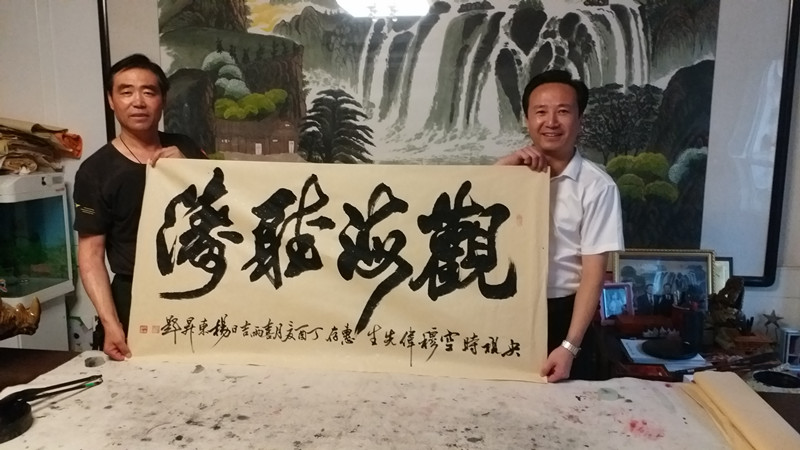 觀海聽濤
央視時空穆偉先生惠存丁酉夏月喜雨吉日楊東昇